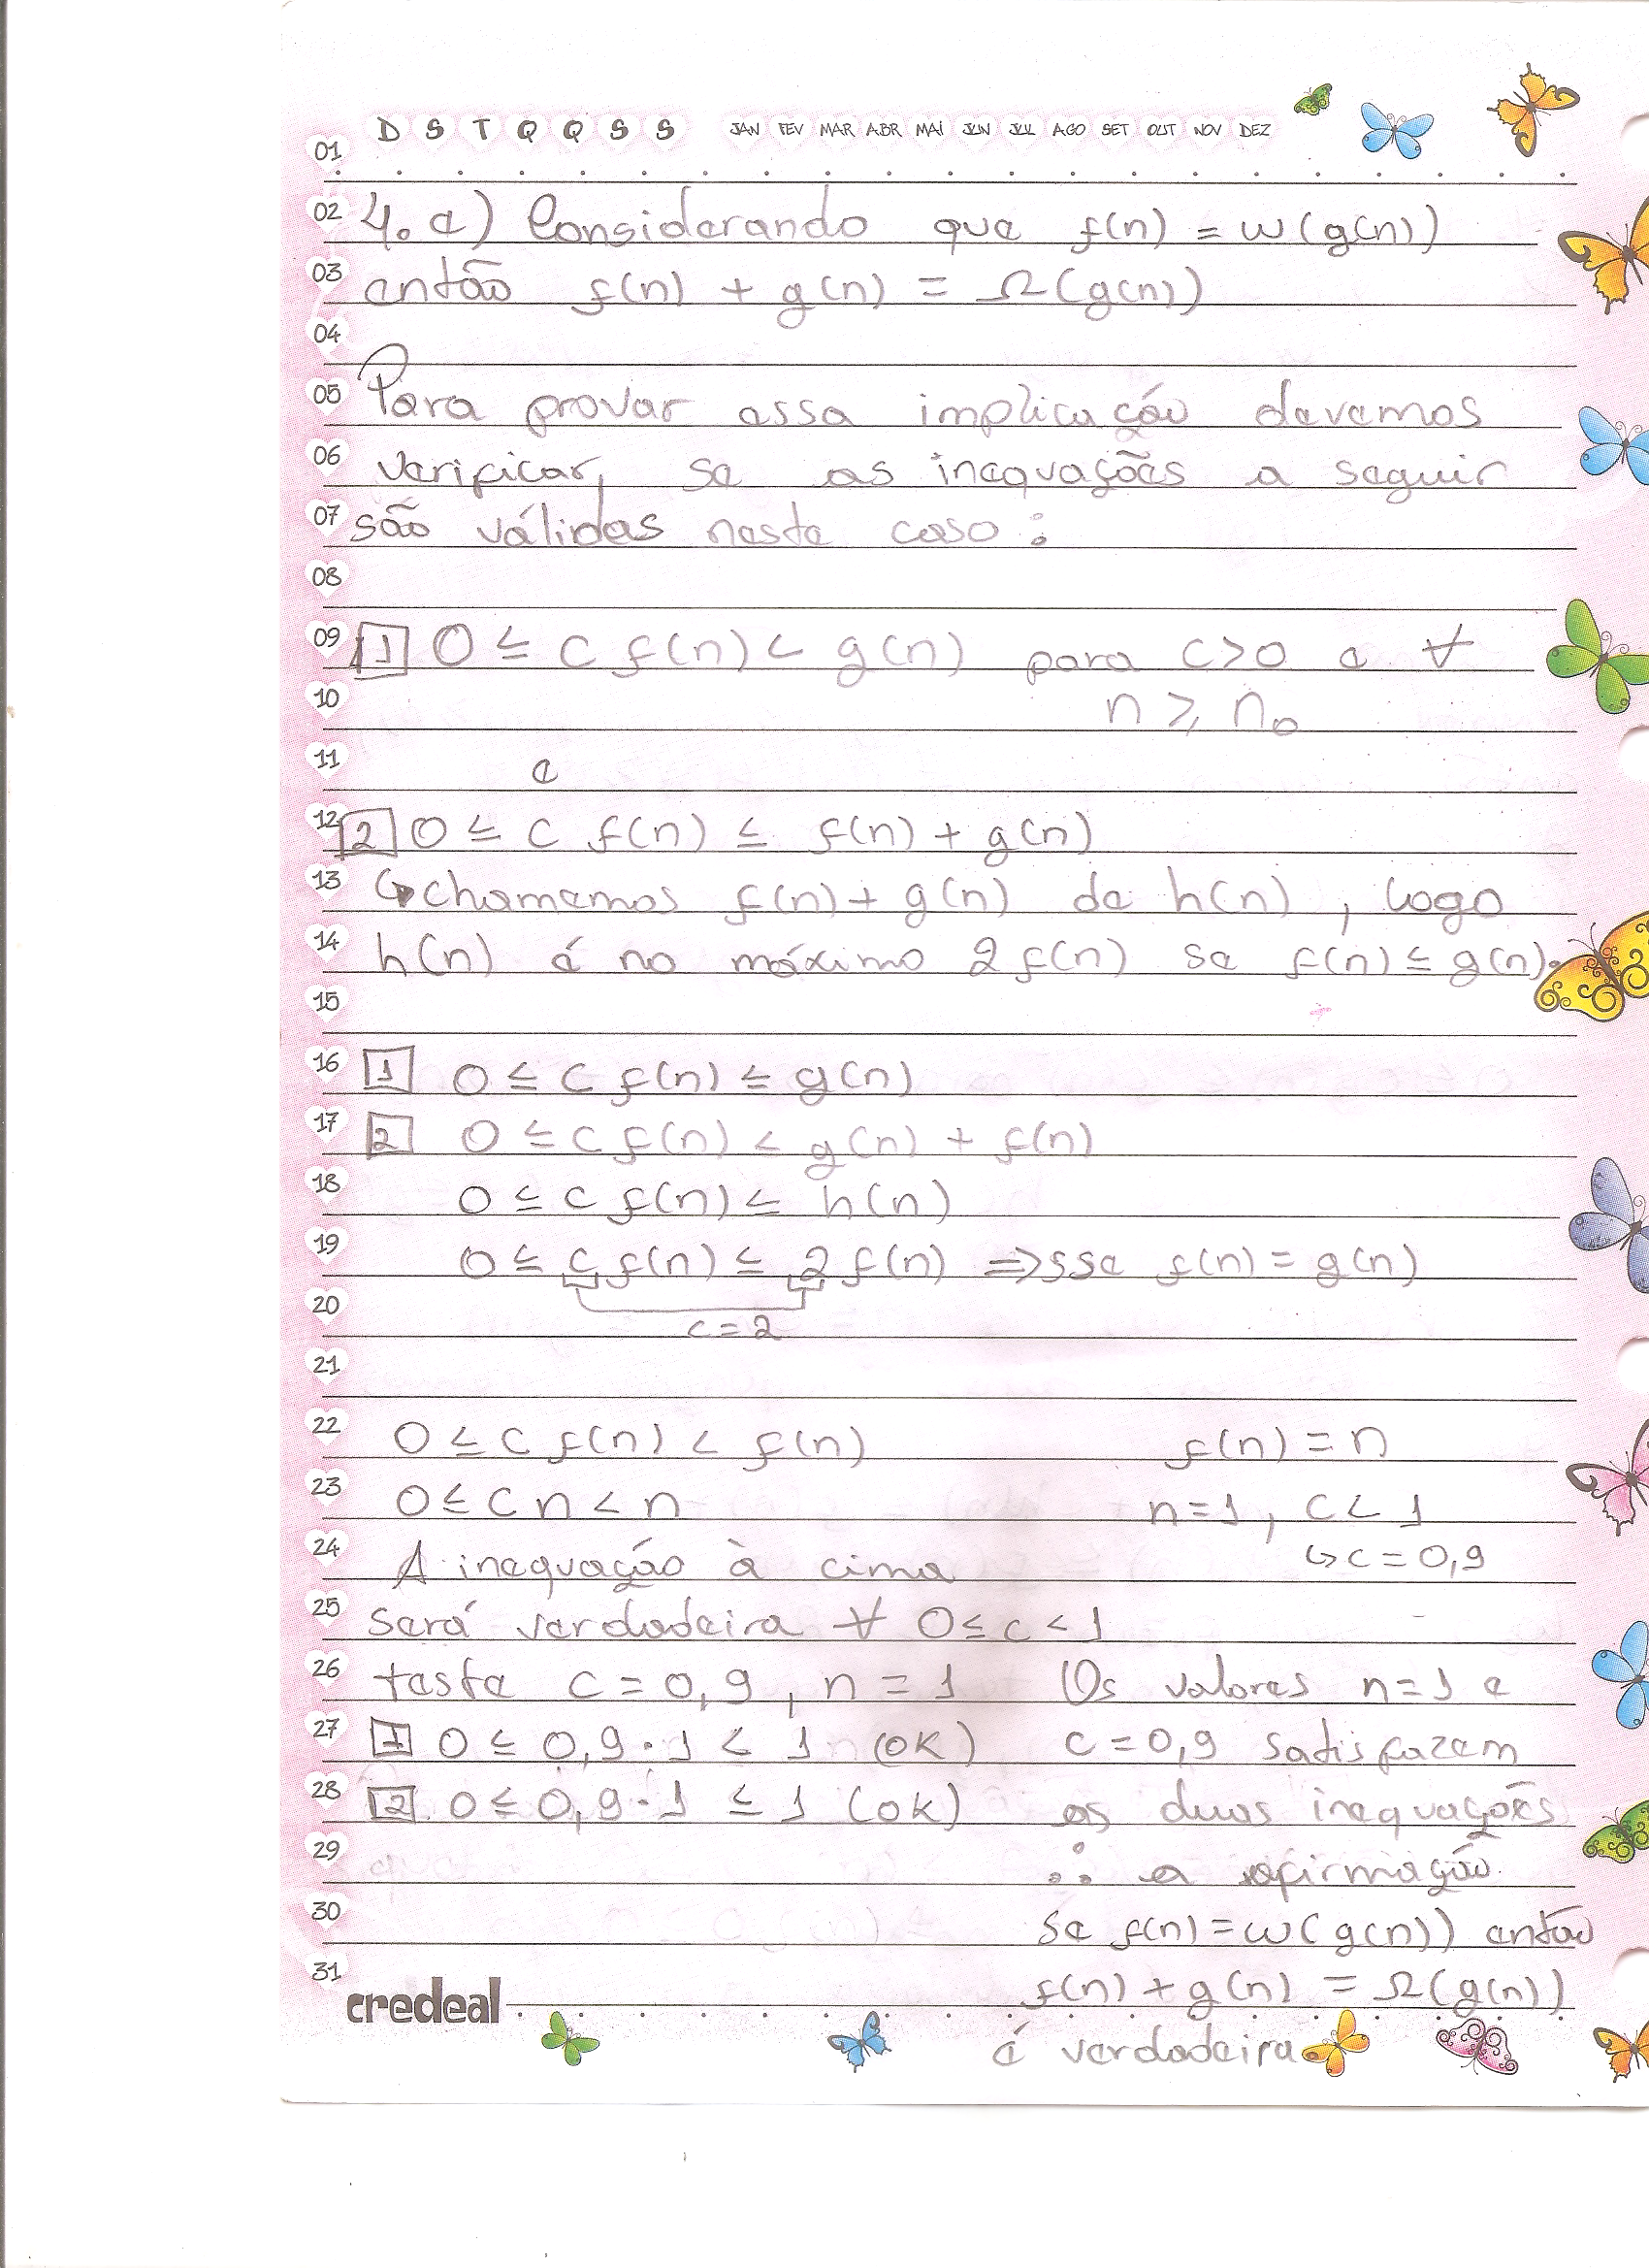 D S T Q Q S S JAN FEV MAR ABR MAI JUN JUL AGO SET OUT NOV DEZ
01
02 4.a) Considerando que f(n) = ω(g(n))
03 então f(n) + g(n) = Ω(g(n))
04
05 Para provar essa implicação devemos
06 verificar, se as inequações a seguir
07 são válidas neste caso:
08
09 1 0 ≤ c f(n) < g(n) para c>0 e ∀
10 n ≥ n₀
11 e
12 2 0 ≤ c f(n) ≤ f(n) + g(n)
13 ↳ chamemos f(n) + g(n) de h(n), logo
14 h(n) é no máximo 2 f(n) se f(n) ≤ g(n).
15
16 1 0 ≤ c f(n) ≤ g(n)
17 2 0 ≤ c f(n) < g(n) + f(n)
18 0 ≤ c f(n) ≤ h(n)
19 0 ≤ c f(n) ≤ 2 f(n) ⇒ sse f(n) = g(n)
20 c = 2
21
22 0 ≤ c f(n) < f(n) f(n) = n
23 0 ≤ c n < n n=1, c < 1
24 A inequação à cima ↳ c = 0,9
25 será verdadeira ∀ 0 ≤ c < 1
26 teste c = 0,9, n = 1 Os valores n=1 e
27 1 0 ≤ 0,9·1 < 1 (OK) c = 0,9 satisfazem
28 2 0 ≤ 0,9·1 ≤ 1 (OK) as duas inequações
29 ∴ a afirmação
30 se f(n) = ω(g(n)) então
31 f(n) + g(n) = Ω(g(n))
credeal
é verdadeira